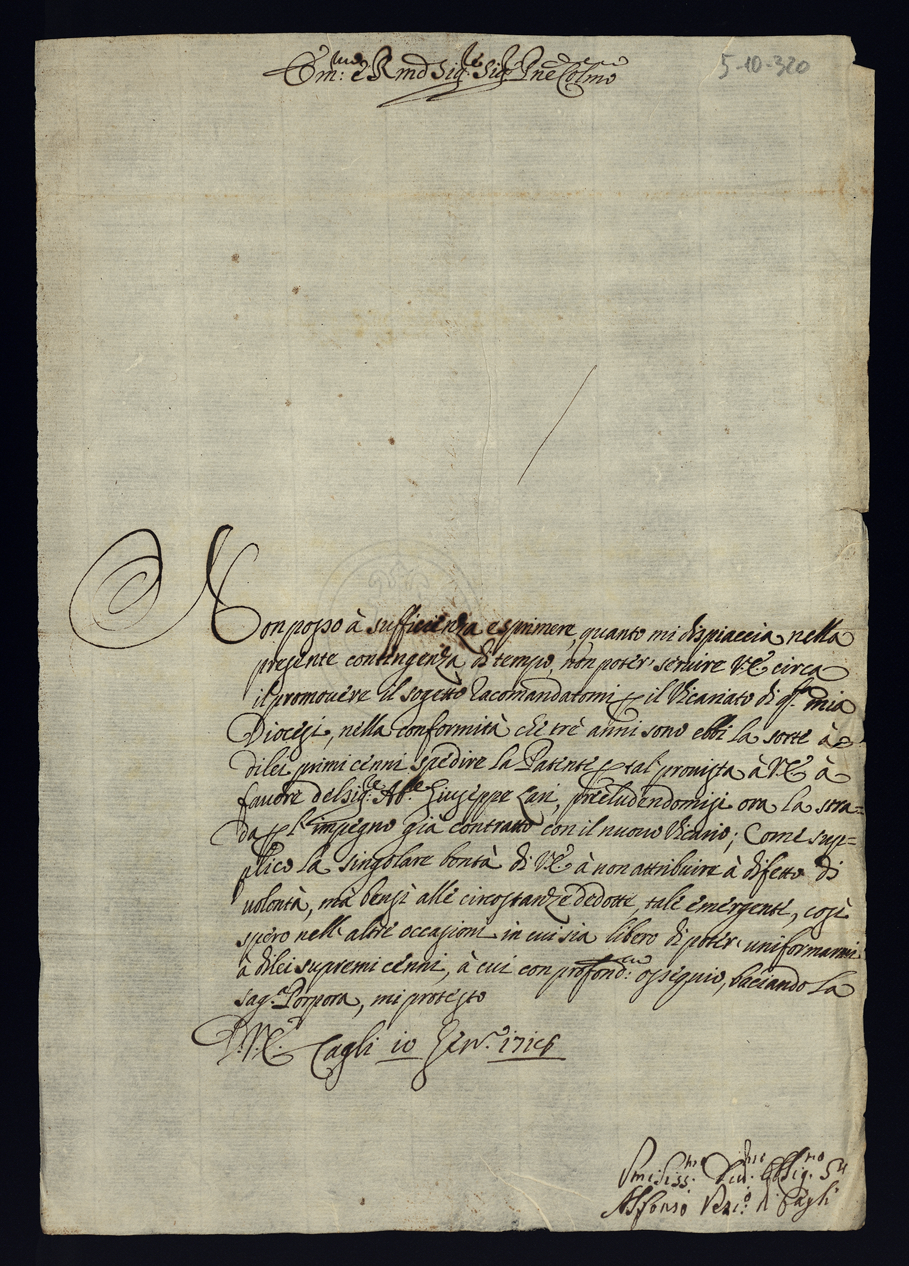 5-10-320
Em:mo e Rmo Sig:re Sig:re Pne Colmo
Non posso à sufficienza esprimere, quanto mi dispiaccia nella
presente contingenza di tempo, non poter' servire V.E. circa
il promovere il sogetto racomandatomi p il Vicariato di qta mia
Diocesi, nella conformità che trè anni sono ebbi la sorte à
di lei primi cenni spedire la Patente p tal' provista à V.E. à
favore del Sig:re Ab:e Giuseppe Lari, precludendomisi ora la stra=
da p l'impegno già contratto con il nuovo Vicario; Come sup=
plico la singolare bontà di V.E. à non attribuire à difetto di
volontà, mà bensì alle circostanze dedotte, tale emergente, così
spero nell' altre occasioni in cui sia libero di poter' uniformarmi
à di lei supremi cenni, à cui con profond:mo ossequio, baciando la
sag:a Porpora, mi protesto
D.V.E. Cagli 10 Gen:o
Umiliss:mo Oblig:mo
Alfonso Vesc:o di Cagli